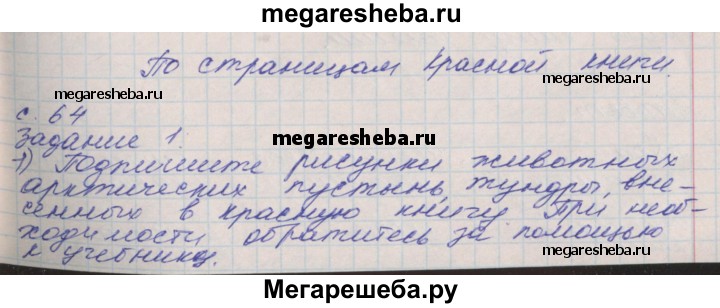 megaresheba.ru
По страницам Красной книги.
megaresheba.ru
megaresheba.ru
с. 64
megaresheba.ru
Задание 1.
1) Подпишите рисунки животных
арктических пустынь, тундры, вне-
сенных в красную книгу. При необ-
ходимости обратитесь за помощью
к учебнику.
megaresheba.ru
megaresheba.ru
Мегарешеба.ру